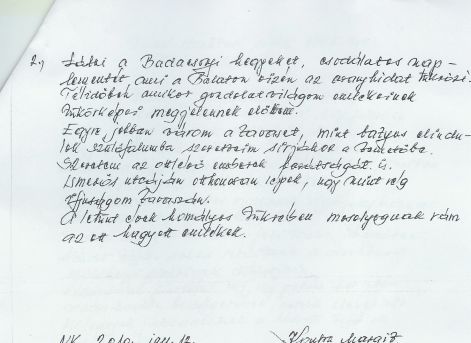 2., Látni a Badacsonyi hegyeket, csodálatos nap-
lementét, ami a Balaton vizén az aranyhidat tükrözi.
Télidőben amikor gondolatvilágom emlékeinek
tükörképei megjelennek előttem.
Egyre jobban várom a tavaszt, mint batyus elindu-
lok szülőfalumba szeretteim sírjához a temetőbe.
Szeretem az ott élő emberek barátságát is.
Ismerős utcáján otthonosan lépek, úgy mint rég
ifjúságom tavaszán.
A letűnt évek homályos tükrében mosolyognak rám
az ott hagyott emlékek.
NK. 2010. jan. 12.
Margit